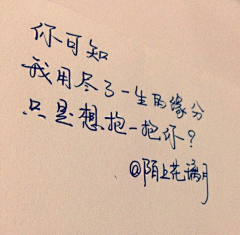 你可知
我用尽了一生的缘分
只是想抱一抱你?
@陌上花漓月